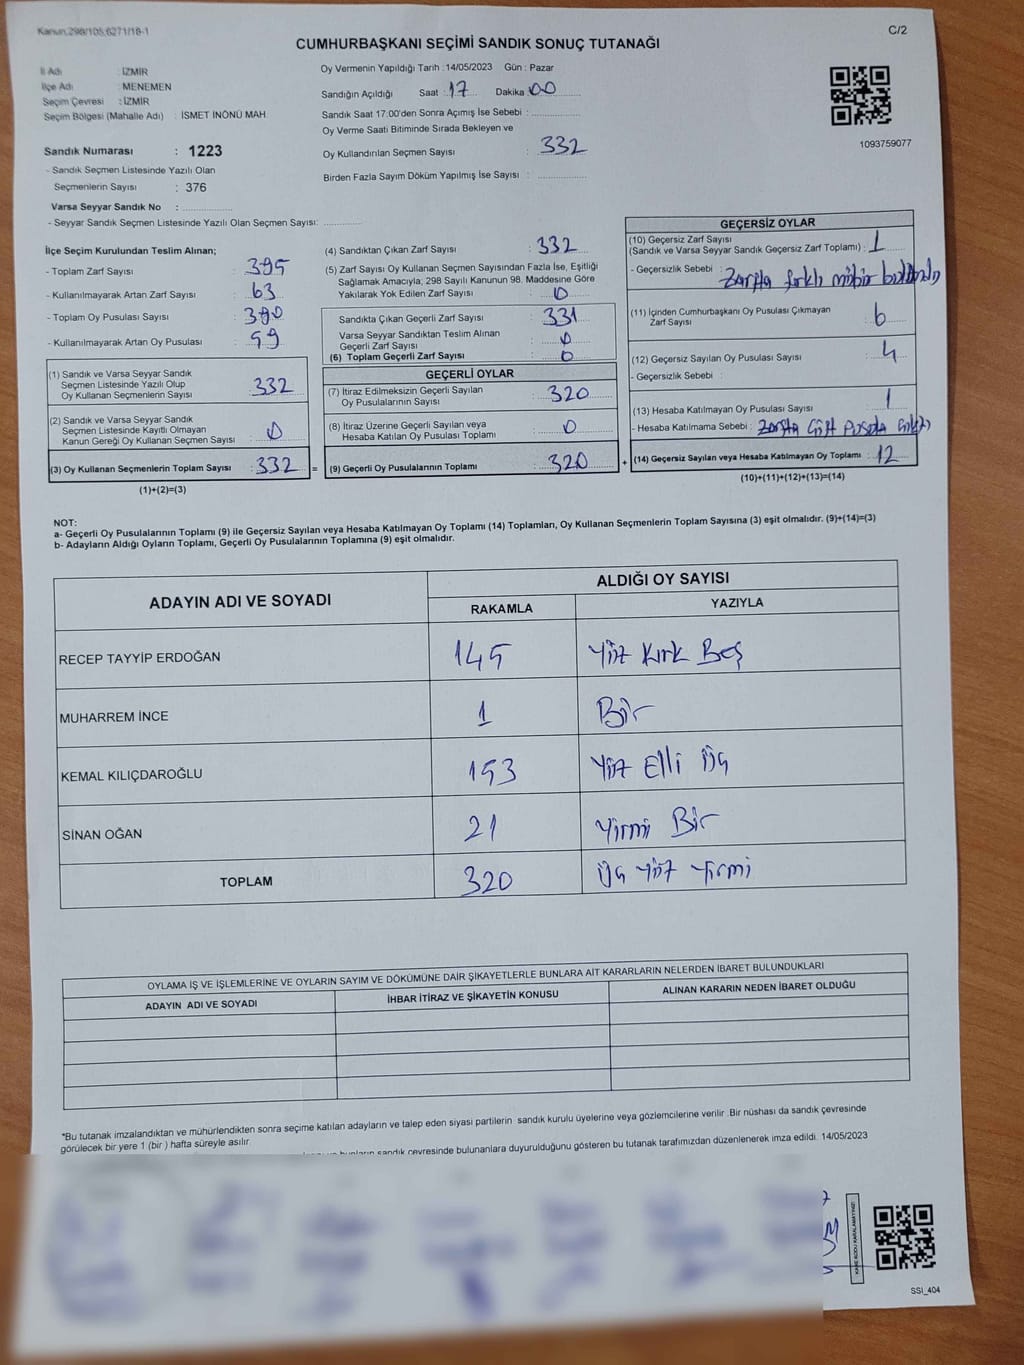 Kanun,298/105,6271/18-1
C/2
CUMHURBAŞKANI SEÇİMİ SANDIK SONUÇ TUTANAĞI
İl Adı : İZMİR
İlçe Adı : MENEMEN
Seçim Çevresi : İZMİR
Seçim Bölgesi (Mahalle Adı) : İSMET İNÖNÜ MAH
Sandık Numarası : 1223
- Sandık Seçmen Listesinde Yazılı Olan
Seçmenlerin Sayısı : 376
Varsa Seyyar Sandık No :
- Seyyar Sandık Seçmen Listesinde Yazılı Olan Seçmen Sayısı:
Oy Vermenin Yapıldığı Tarih :14/05/2023 Gün : Pazar
Sandığın Açıldığı Saat : 17 Dakika : 00
Sandık Saat 17:00'den Sonra Açımış İse Sebebi :
Oy Verme Saati Bitiminde Sırada Bekleyen ve
Oy Kullandırılan Seçmen Sayısı : 332
Birden Fazla Sayım Döküm Yapılmış İse Sayısı :
1093759077
İlçe Seçim Kurulundan Teslim Alınan;
- Toplam Zarf Sayısı : 395
- Kullanılmayarak Artan Zarf Sayısı : 63
- Toplam Oy Pusulası Sayısı : 390
- Kullanılmayarak Artan Oy Pusulası : 59
(1) Sandık ve Varsa Seyyar Sandık
Seçmen Listesinde Yazılı Olup
Oy Kullanan Seçmenlerin Sayısı : 332
(2) Sandık ve Varsa Seyyar Sandık
Seçmen Listesinde Kayıtlı Olmayan
Kanun Gereği Oy Kullanan Seçmen Sayısı : 0
(3) Oy Kullanan Seçmenlerin Toplam Sayısı : 332 =
(1)+(2)=(3)
(4) Sandıktan Çıkan Zarf Sayısı : 332
(5) Zarf Sayısı Oy Kullanan Seçmen Sayısından Fazla İse, Eşitliği
Sağlamak Amacıyla; 298 Sayılı Kanunun 98. Maddesine Göre
Yakılarak Yok Edilen Zarf Sayısı : 0
Sandıkta Çıkan Geçerli Zarf Sayısı : 331
Varsa Seyyar Sandıktan Teslim Alınan
Geçerli Zarf Sayısı : 0
(6) Toplam Geçerli Zarf Sayısı : 0
GEÇERLİ OYLAR
(7) İtiraz Edilmeksizin Geçerli Sayılan
Oy Pusulalarının Sayısı : 320
(8) İtiraz Üzerine Geçerli Sayılan veya
Hesaba Katılan Oy Pusulası Toplamı : 0
(9) Geçerli Oy Pusulalarının Toplamı : 320 +
GEÇERSİZ OYLAR
(10) Geçersiz Zarf Sayısı
(Sandık ve Varsa Seyyar Sandık Geçersiz Zarf Toplamı) : 1
- Geçersizlik Sebebi : Zarfta farklı mühür
(11) İçinden Cumhurbaşkanı Oy Pusulası Çıkmayan
Zarf Sayısı : 6
(12) Geçersiz Sayılan Oy Pusulası Sayısı : 4
- Geçersizlik Sebebi :
(13) Hesaba Katılmayan Oy Pusulası Sayısı : 1
- Hesaba Katılmama Sebebi : Zarfta Çift Pusula
(14) Geçersiz Sayılan veya Hesaba Katılmayan Oy Toplamı : 12
(10)+(11)+(12)+(13)=(14)
NOT:
a- Geçerli Oy Pusulalarının Toplamı (9) ile Geçersiz Sayılan veya Hesaba Katılmayan Oy Toplamı (14) Toplamları, Oy Kullanan Seçmenlerin Toplam Sayısına (3) eşit olmalıdır. (9)+(14)=(3)
b- Adayların Aldığı Oyların Toplamı, Geçerli Oy Pusulalarının Toplamına (9) eşit olmalıdır.
ADAYIN ADI VE SOYADI
ALDIĞI OY SAYISI
RAKAMLA YAZIYLA
RECEP TAYYİP ERDOĞAN 145 Yüz Kırk Beş
MUHARREM İNCE 1 Bir
KEMAL KILIÇDAROĞLU 153 Yüz Elli Üç
SİNAN OĞAN 21 Yirmi Bir
TOPLAM 320 Üç Yüz Yirmi
OYLAMA İŞ VE İŞLEMLERİNE VE OYLARIN SAYIM VE DÖKÜMÜNE DAİR ŞİKAYETLERLE BUNLARA AİT KARARLARIN NELERDEN İBARET BULUNDUKLARI
ADAYIN ADI VE SOYADI İHBAR İTİRAZ VE ŞİKAYETİN KONUSU ALINAN KARARIN NEDEN İBARET OLDUĞU
*Bu tutanak imzalandıktan ve mühürlendikten sonra seçime katılan adayların ve talep eden siyasi partilerin sandık kurulu üyelerine veya gözlemcilerine verilir .Bir nüshası da sandık çevresinde
görülecek bir yere 1 (bir ) hafta süreyle asılır.
bunların sandık çevresinde bulunanlara duyurulduğunu gösteren bu tutanak tarafımızdan düzenlenerek imza edildi. 14/05/2023
KARE KODU KARALAMAYINIZ!
SSI_404